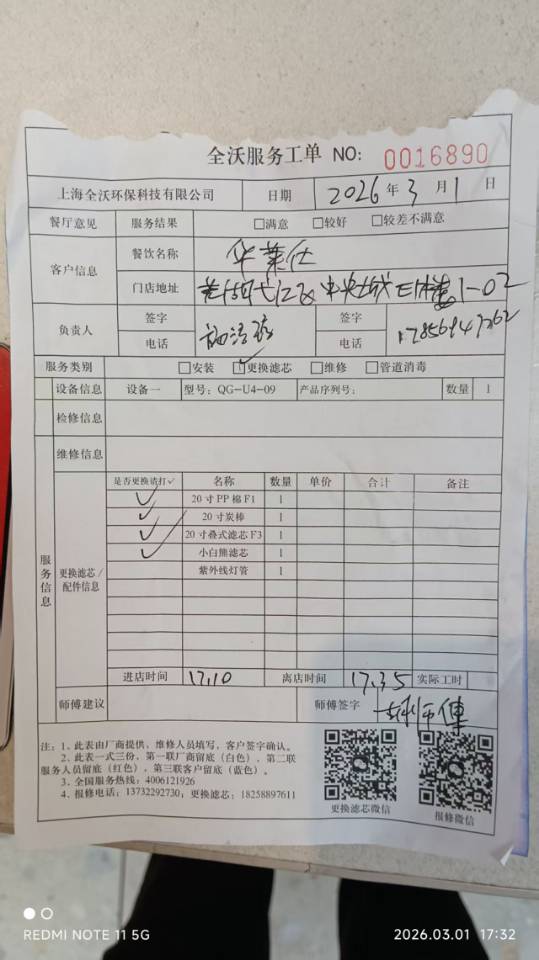 全沃服务工单 NO: 0016890
上海全沃环保科技有限公司 日期 2026年3月1日
餐厅意见 服务结果 □满意 □较好 □较差不满意
客户信息 餐饮名称 华莱仕
门店地址 中央城 1-02
负责人 签字 签字
电话 电话
服务类别 □安装 ☑更换滤芯 □维修 □管道消毒
设备信息 设备一 型号: QG-U4-09 产品序列号: 数量 1
检修信息
维修信息
服务信息
更换滤芯/配件信息
是否更换请打✓ 名称 数量 单价 合计 备注
✓ 20寸PP棉F1 1
✓ 20寸炭棒 1
✓ 20寸叠式滤芯F3 1
✓ 小白熊滤芯 1
紫外线灯管 1
进店时间 17.10 离店时间 17.35 实际工时
师傅建议 师傅签字
注: 1、此表由厂商提供, 维修人员填写, 客户签字确认。
2、此表一式三份, 第一联厂商留底 (白色), 第二联
服务人员留底 (红色), 第三联客户留底 (蓝色)。
3、全国服务热线: 4006121926
4、报修电话: 13732292730; 更换滤芯: 18258897611
更换滤芯微信 报修微信
REDMI NOTE 11 5G 2026.03.01 17:32